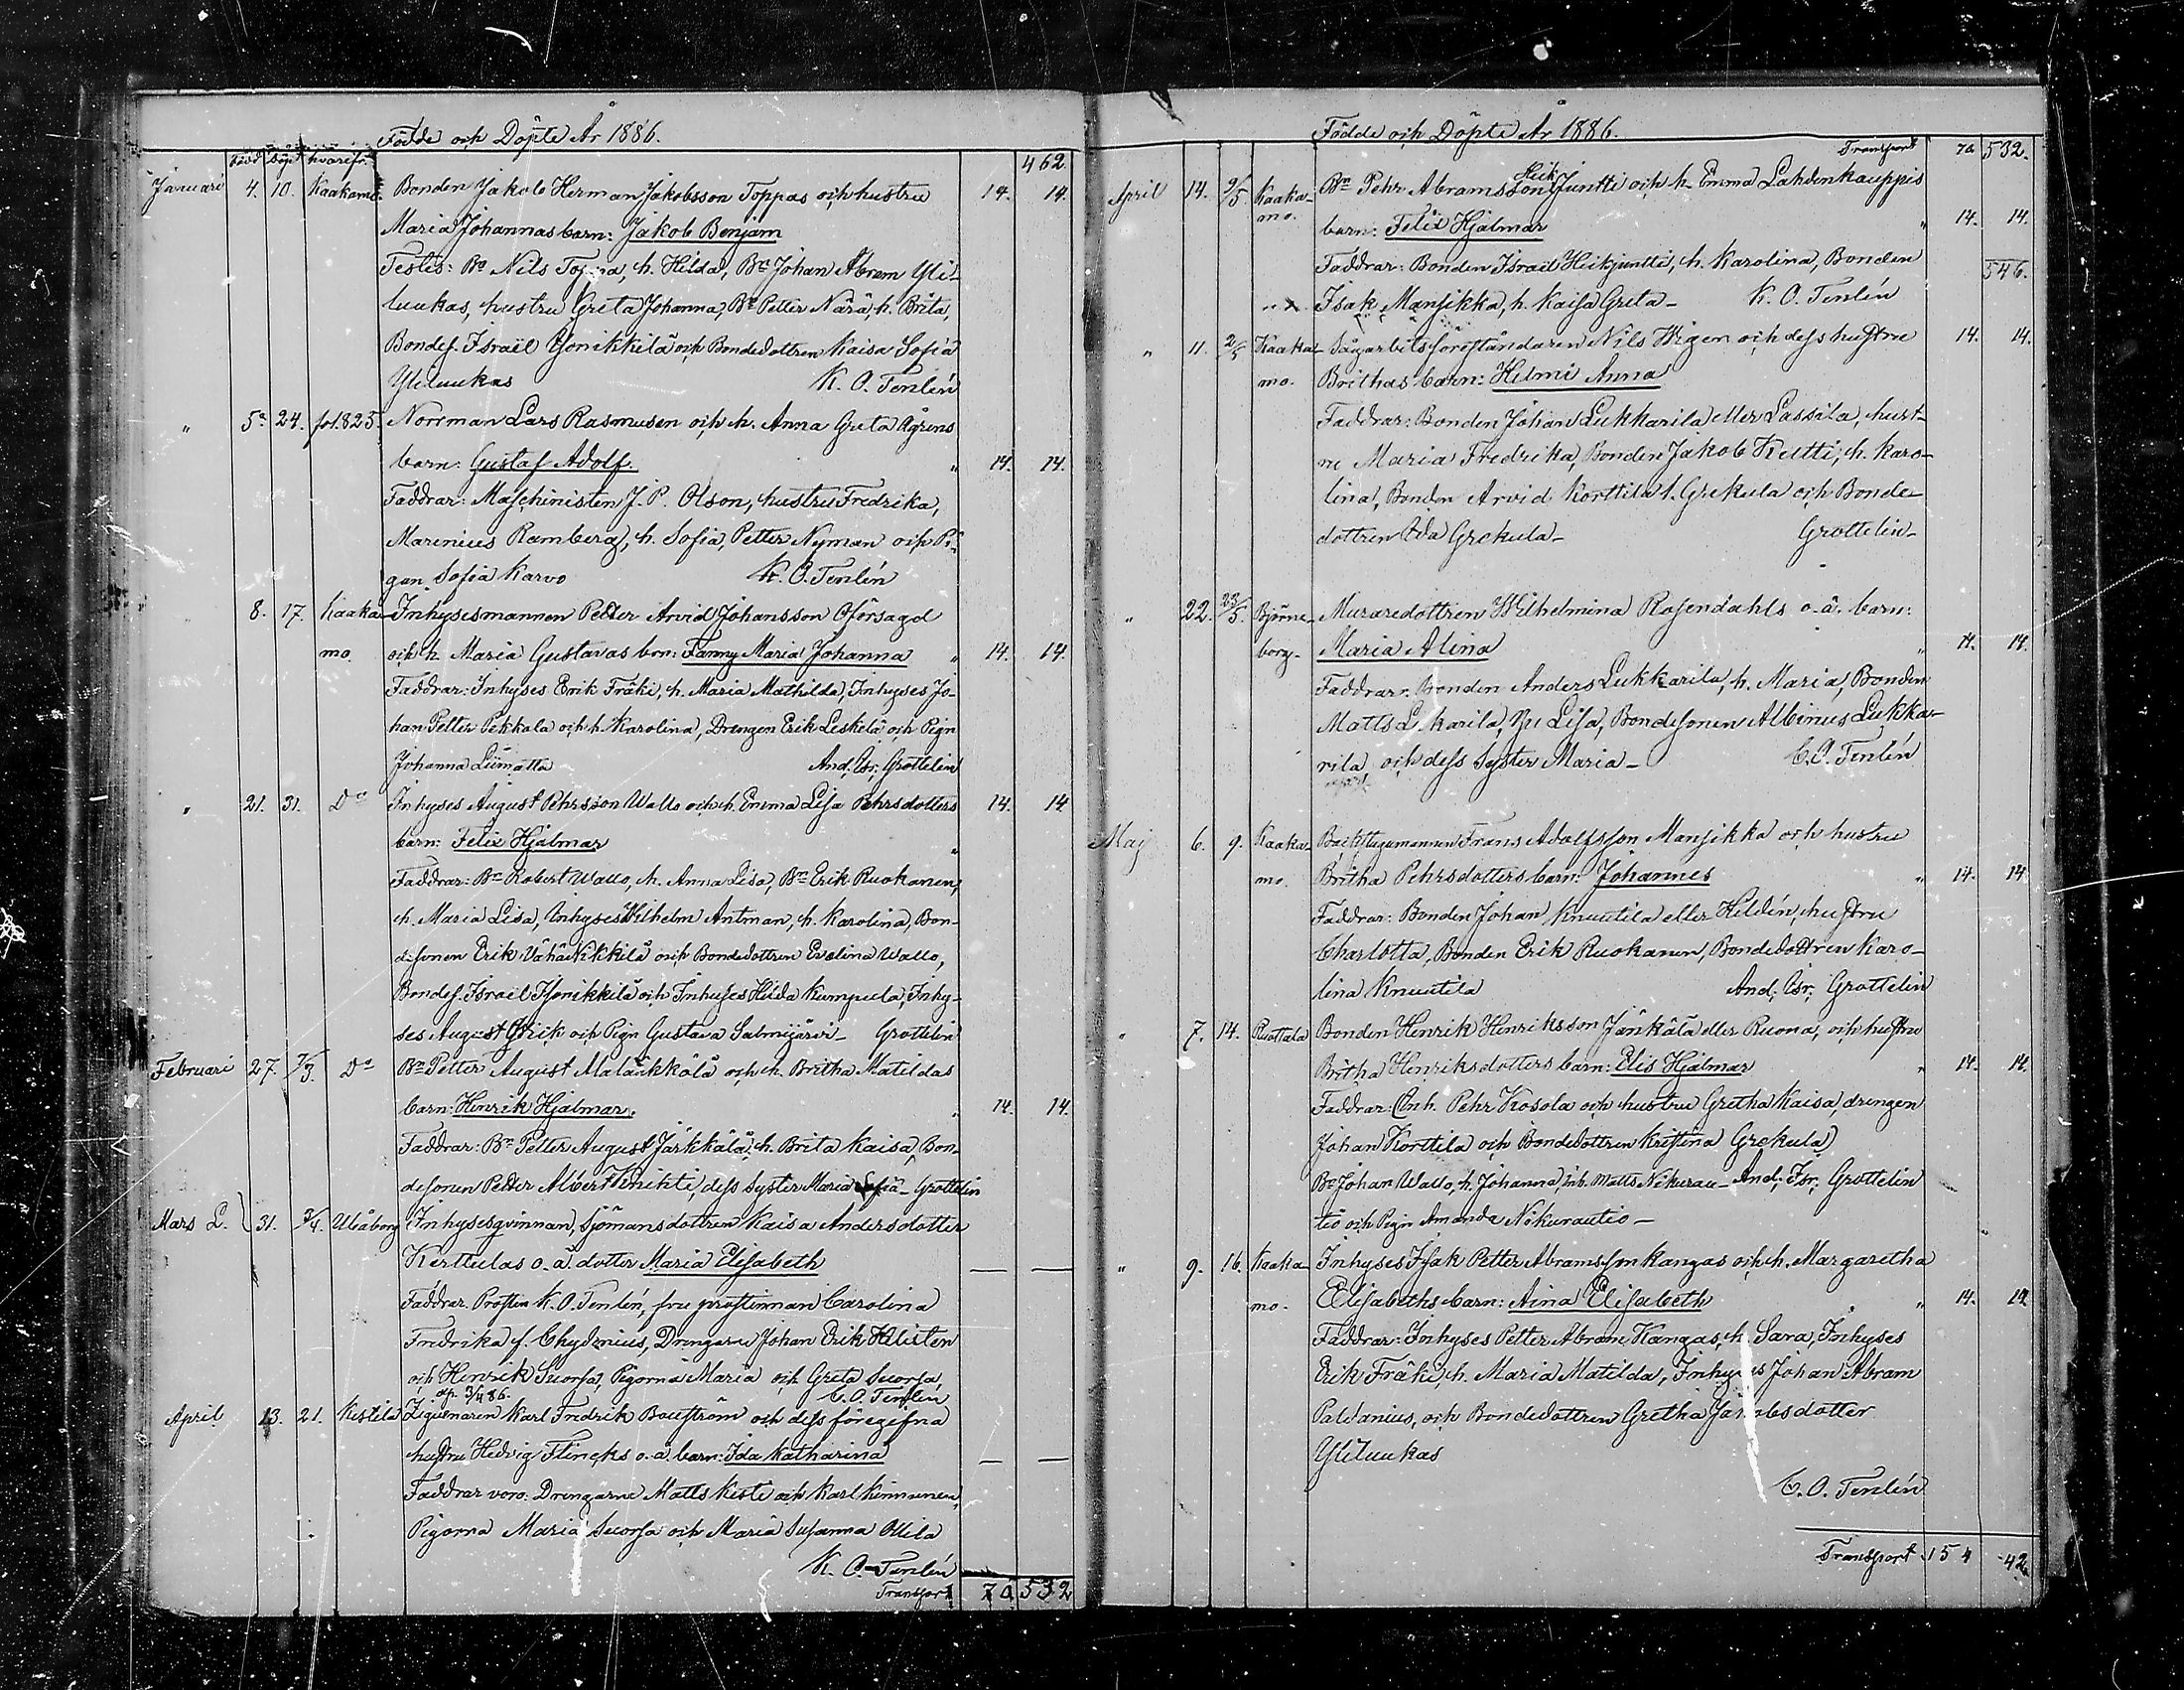 Födde och Döpte År 1886.
född döpt hvarifr.
462.
Januari 4. 10. Kaakamo. Bonden Jakob Herman Jakobsson Toppas och hustru 14. 14.
Maria Johannas barn: Jakob Benjam
Testes: Bn Nils Toppa, h. Hilda, Bn Johan Abram Yli-
luukas, hustru Greta Johanna, Bn Petter Närä, h. Brita,
Bondes. Israel Isonikkilä och Bondedottren Kaisa Sofia
Yliluukas K. O. Tenlén
" 5. 24. fol. 825. Norrman Lars Rasmusen och h. Anna Greta Ågrens
barn: Gustaf Adolf. " 14. 14.
Faddrar: Maschinisten J. P. Olson, hustru Fredrika,
Marenius Ramberg, h. Sofia, Petter Nyman och Pi-
gan Sofia Karvo K. O. Tenlén
8. 17. Kaaka- Inhysesmannen Petter Arvid Johansson Oförsagd
mo. och h. Maria Gustavas brn: Fanny Maria Johanna " 14. 14.
Faddrar: Inhyses Erik Fräki, h. Maria Mathilda, Inhyses Jo-
han Petter Pekkala och h. Karolina, Drengen Erik Leskelä och Pign
Johanna Lümatta And. Isr. Grottelin
" 21. 31. Do Inhyses August Pehrsson Wallo och h. Emma Lisa Pehrsdotters 14. 14
barn: Felix Hjalmar "
Faddrar: Bn Robert Wallo, h. Anna Lisa, Bn Erik Ruokanen,
h. Maria Lisa, Inhyses Wilhelm Antman, h. Karolina, Bon-
desonen Erik Vähänikkilä och Bondedottren Evelina Wallo,
Bondes. Israel Isonikkilä och Inhyses Hilda Kumpula, Inhy-
ses August Brick och Pign Gustava Salmijärvi- Grottelin
Februari 27. 7/3. Do Bn Petter August Maläckkälä och h. Britha Matildas
barn: Henrik Hjalmar. " 14. 14.
Faddrar: Bn Petter August Järkkälä, h. Brita Kaisa, Bon-
desonen Petter Albert Knikti, dess syster Maria Sofia- Grottelin
Mars L. 31. 3/4. Uleåborg Inhysesqvinnan, sjömansdottren Kaisa Andersdotter
Kerttulas o. ä. dotter Maria Elisabeth — —
Faddrar. Prosten K. O. Tenlén, fru prostinnan Carolina
Fredrika f. Chydenius, Drengarne Johan Erik Hellsten
och Henrik Suorsa, Pigorna Maria och Greta Suorsa,
dp. 3/4 86. C. O. Tenlén
April 13. 21. Kestilä Zigenaren Karl Fredrik Bouström och dess föregifna
hustru Hedvig Flincks o. ä. barn: Ida Katharina — —
Faddrar voro: Drengarne Matts Keste och Karl Kinnunen,
Pigorna Maria Suorsa och Maria Susanna Ollila
K. O. Tenlén
Transport 70 532
Födde och Döpte År 1886.
Transport 70 532.
Heik
April 14. 9/5. Kaaka- Bn Pehr Abramsson Juntti och h. Emma Lahdenkauppis
mo. barn: Felix Hjalmar " 14. 14.
Faddrar: Bonden Israel Heikjuntti, h. Karolina, Bonden 546.
Isak Mansikka, h. Kaisa Greta- K. O. Tenlén
" 11. 2/5 Kaaka- Sågarbetsförestandaren Nils Wigen och dess hustru 14. 14.
mo. Brithas barn: Helmi Anna
Faddrar: Bonden Johan Lukkarila eller Lassila, hust-
ru Maria Fredrika, Bonden Jakob Kutti, h. Karo-
lina, Bonden Arvid Korttila l. Grekula och Bonde-
dottren Ida Grekula- Grottelin-
" 22. 23/5. Björne- Muraredottren Wilhelmina Rosendahls o. ä. barn:
borg- Maria Alina " 14. 14.
Faddrar: Bonden Anders Lukkarila, h. Maria, Bonden
Matts Lukkarila, h. Lisa, Bondesonen Albinus Lukka-
rila och dess syster Maria- C. O. Tenlén
Maj 6. 9. Kaaka- Backstugumannen Frans Adolfsson Mansikka och hustru
mo. Britha Pehrsdotters barn: Johannes " 14. 14
Faddrar: Bonden Johan Knuutila eller Hildén, hustru
Charlotta, Bonden Erik Ruokanen, Bondedottren Karo-
lina Knuutila And. Isr. Grottelin
" 7. 14. Ruottala Bonden Henrik Henriksson Jänkälä eller Ruona, och hustru
Britha Henriksdotters barn: Elis Hjalmar " 14. 14.
Faddrar: (Inh. Pehr Kosola och hustru Gretha Kaisa, drengen
Johan Korttila och Bondedottren Kristina Grekula)
Bn Johan Wallo, h. Johanna, inh. Matts Nikurau- And. Isr. Grottelin
tio och Pign Amanda Nikurautio-
" 9. 16. Kaaka- Inhyses Isak Petter Abramsson Kangas och h. Margaretha
mo. Elisabeths barn: Aina Elisabeth " 14. 14
Faddrar: Inhyses Petter Abram Kangas, h. Sara, Inhyses
Erik Fräki, h. Maria Matilda, Inhyses Johan Abram
Paldanius, och Bondedottren Gretha Jakobsdotter
Yliluukas
C. O. Tenlén
Transport 154 42